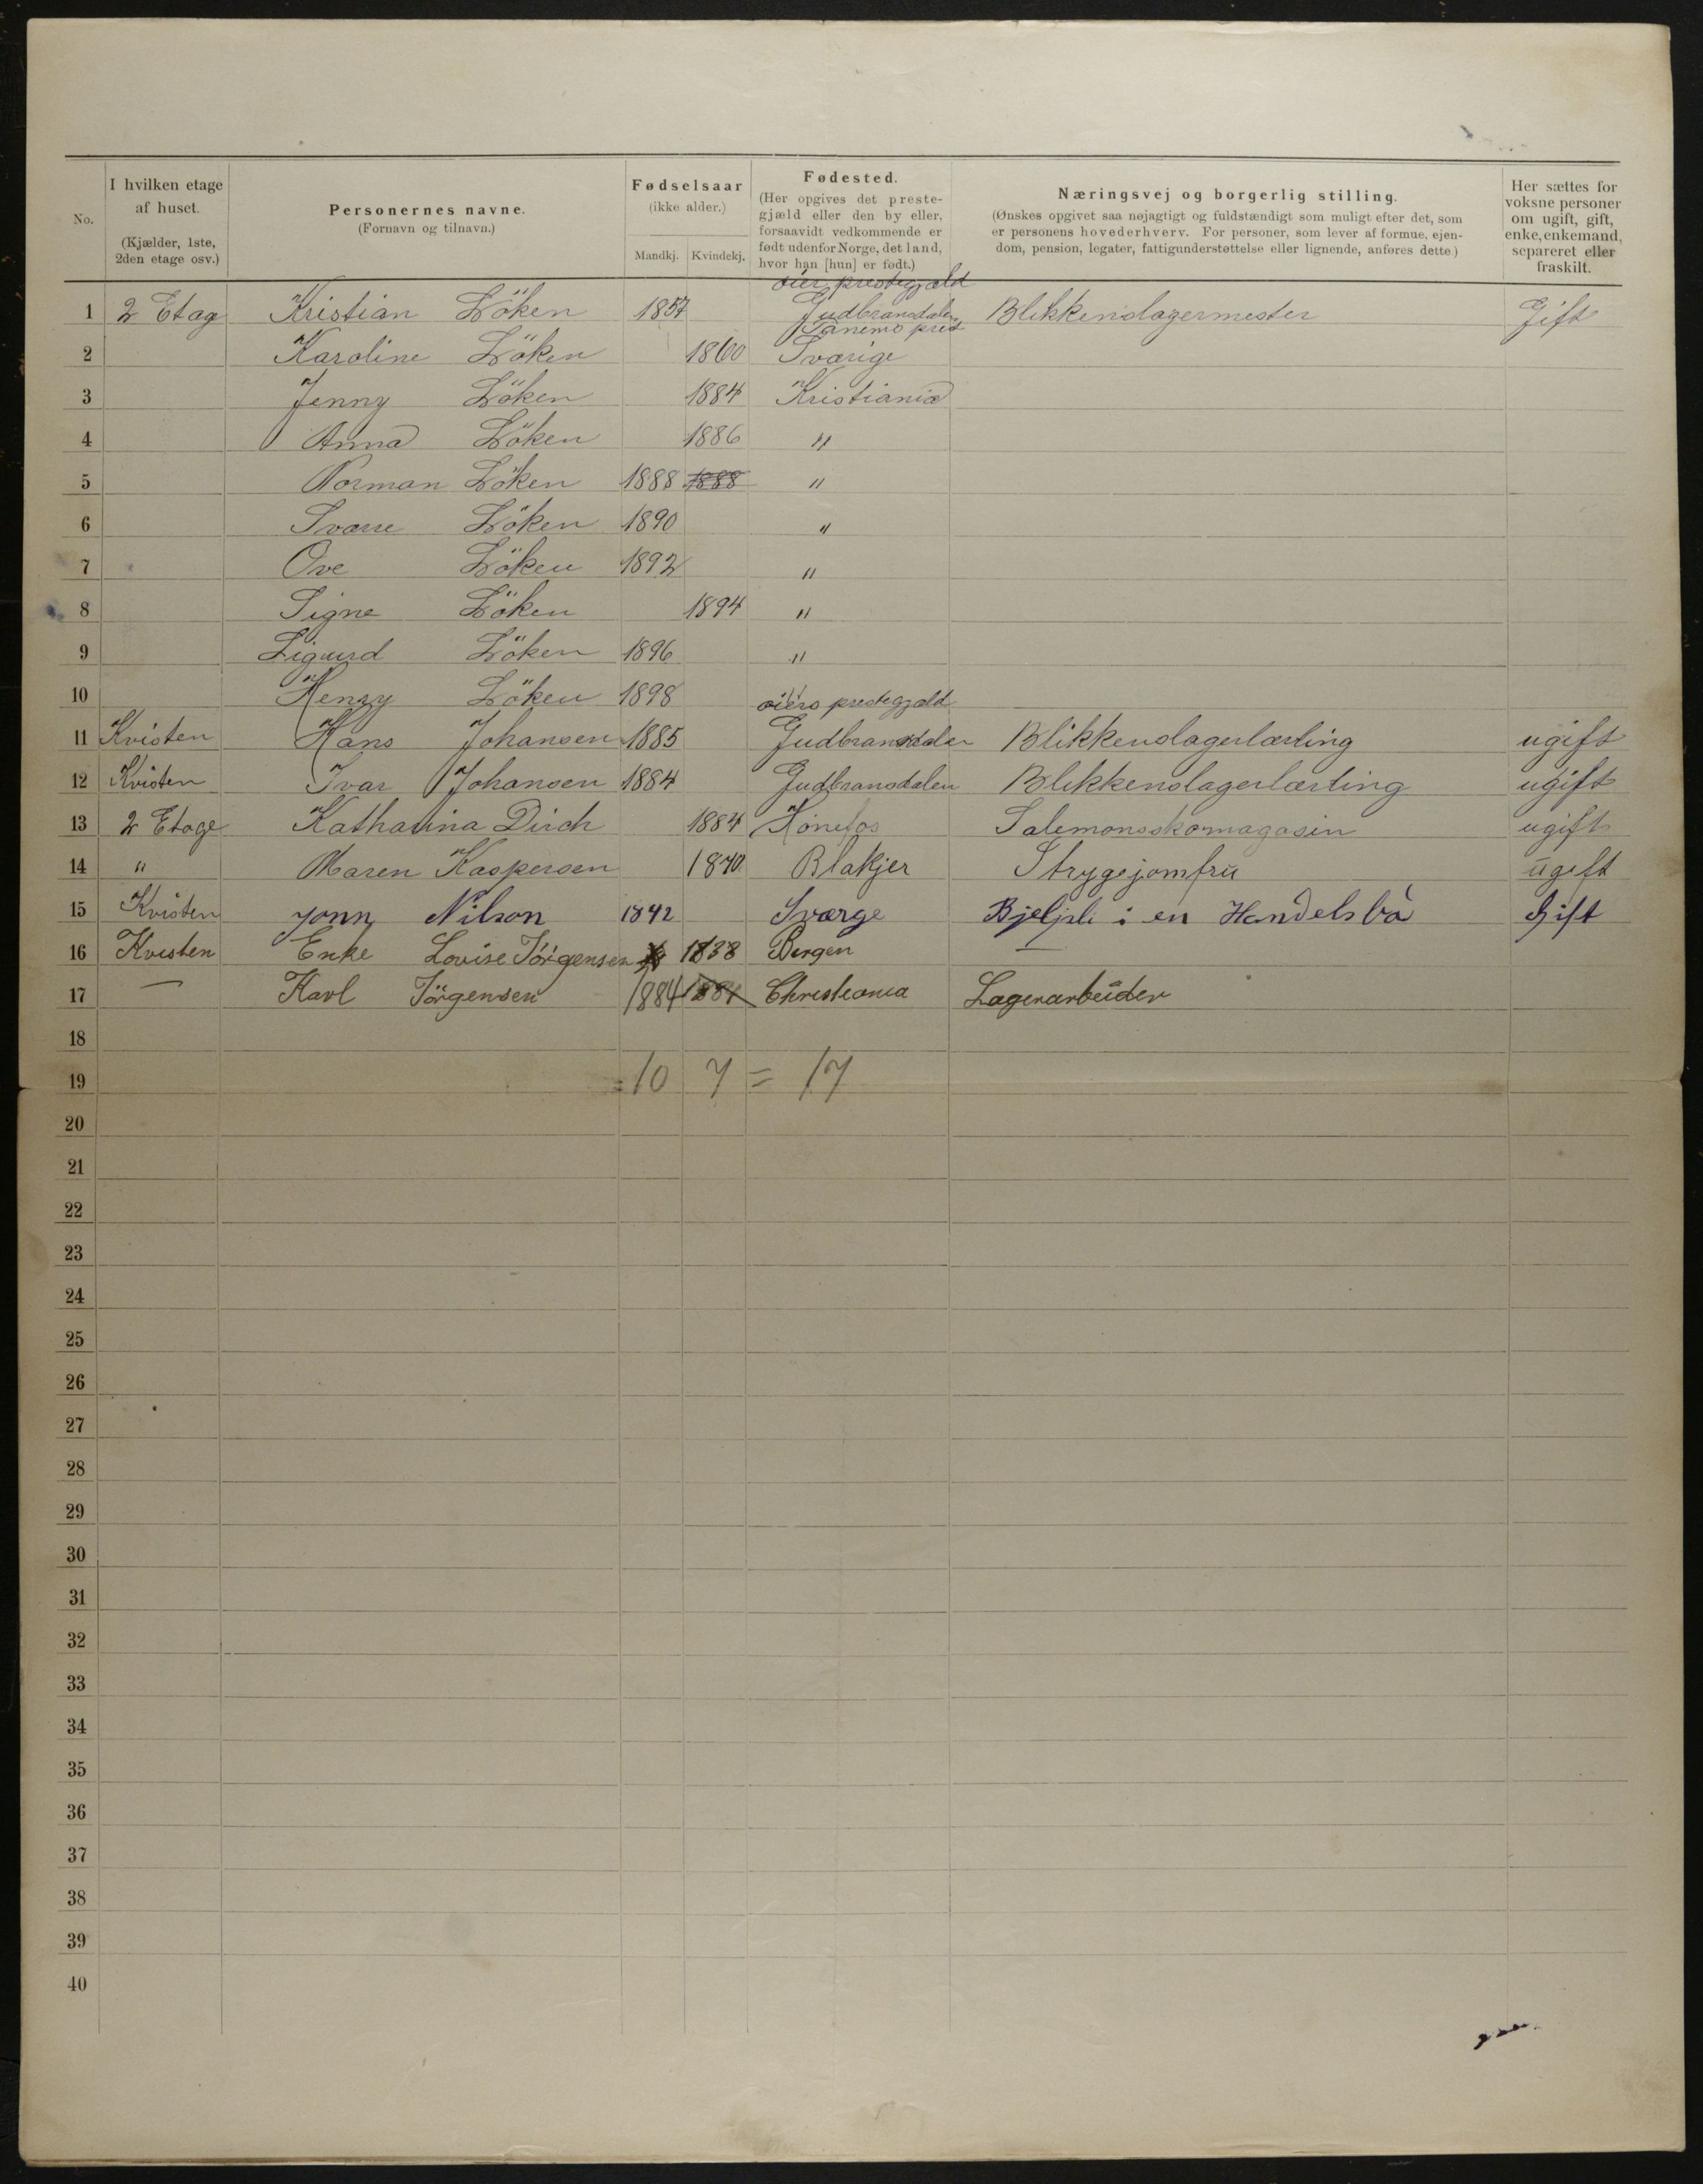 No.
I hvilken etage af huset. (Kjælder, 1ste, 2den etage osv.)
Personernes navne. (Fornavn og tilnavn.)
Fødselsaar (ikke alder.) Mandkj. Kvindekj.
Fødested. (Her opgives det prestegjæld eller den by eller, forsaavidt vedkommende er født udenfor Norge, det land, hvor han [hun] er født.)
Næringsvej og borgerlig stilling. (Ønskes opgivet saa nøjagtigt og fuldstændigt som muligt efter det, som er personens hovederhverv. For personer, som lever af formue, ejendom, pension, legater, fattigunderstøttelse eller lignende, anføres dette.)
Her sættes for voksne personer om ugift, gift, enke, enkemand, separeret eller fraskilt.
öier prestegjæld
1 2 Etag Kristian Löken 1857 Gudbransdalen Blikkenslagermester Gift
2 Karoline Löken 1860 Sværige
3 Jenny Löken 1884 Kristiania
4 Anna Löken 1886 "
5 Norman Löken 1888 1888 "
6 Sværre Löken 1890 "
7 Ove Löken 1892 "
8 Signe Löken 1894 "
9 Sigurd Löken 1896 "
10 Henry Löken 1898 "
öiers prestegjæld
11 Kvisten Hans Johansen 1885 Gudbransdalen Blikkenslagerlærling ugift
12 Kvisten Ivar Johansen 1884 Gudbransdalen Blikkenslagerlærling ugift
13 2 Etage Katharina Dirch 1884 Hönefos Salemonsskomagasin ugift
14 " Maren Kaspersen 1870 Blakjer Strygejomfru ugift
15 Kvisten Jonn Nilson 1842 Sværge i en Handelsbå Gift
16 Kvisten Enke Lovise Jörgensen 1838 Bergen —
17 — Karl Jörgensen 1884 1884 Christiania Lagerarbeider
18
19 =10 7 = 17
20
21
22
23
24
25
26
27
28
29
30
31
32
33
34
35
36
37
38
39
40